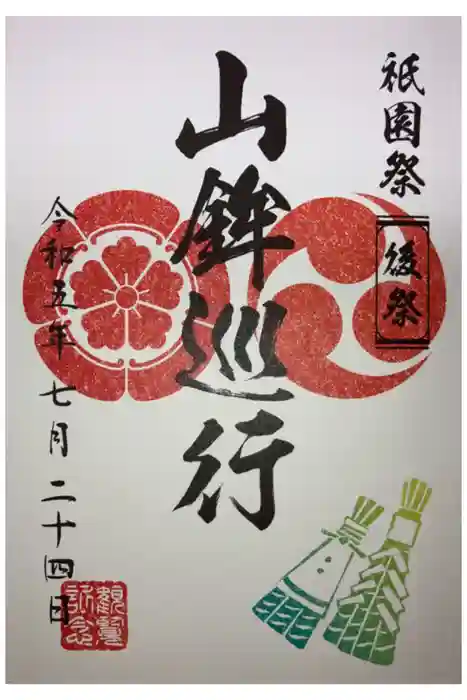 祇園祭
後祭
山鉾巡行
令和五年七月二十四日
観覧
記念